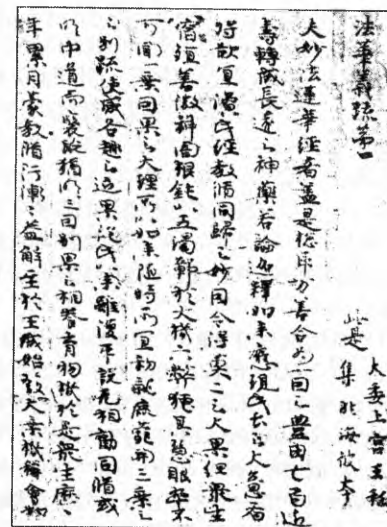 法華義疏第一
大委上宮王私
此是 集非海彼本
夫妙法蓮華經者蓋是惣取万善合為一因之豊田七百近
壽轉成長遠之神藥若論迦釋如来應現此土之大意者
将欲宜演此經教脩同歸之妙因令得莫二之大果但衆生
宿殖善微神闇根鈍以五濁鄣於大機六弊掩其慧眼卒不
可聞一乗因果之大理所以如来随時所宜初就鹿苑開三乗之
別疏使感各趣之近果従此以来雖復平説无相勧同脩或
明中道而褒貶猶明三因別果之相養育物機於是衆生歴
年累月蒙教脩行漸漸益解至於王城始發大乗機稱會如